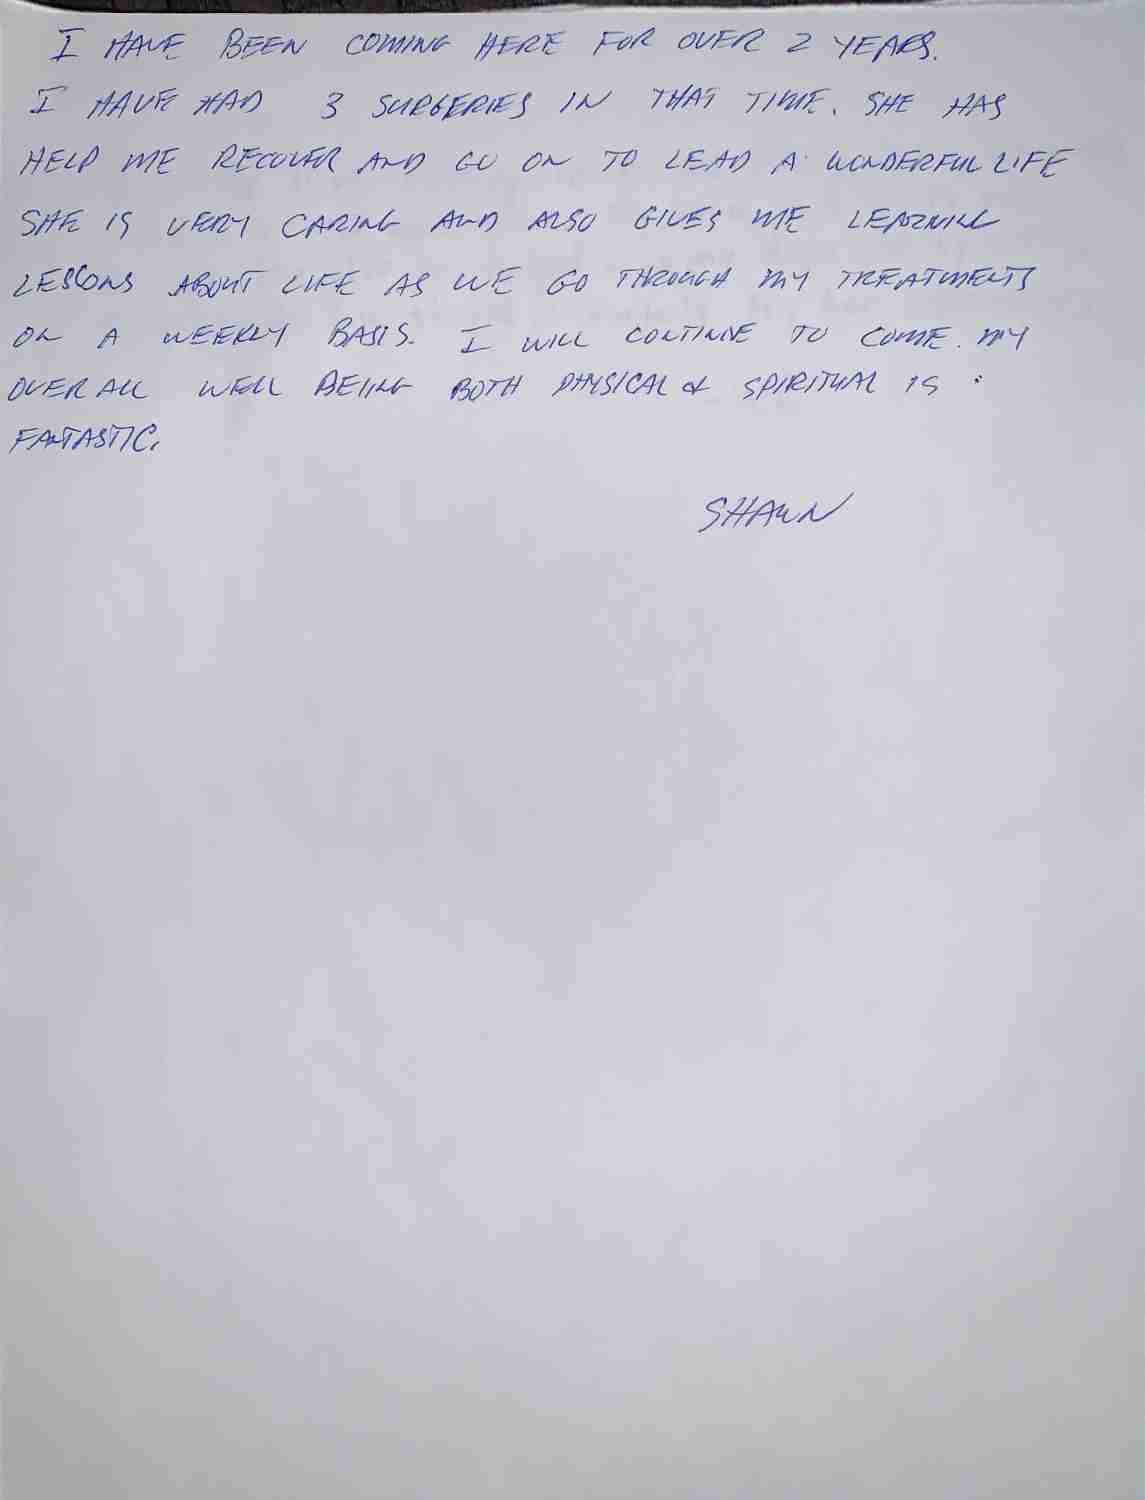 I HAVE BEEN COMING HERE FOR OVER 2 YEARS.
I HAVE HAD 3 SURGERIES IN THAT TIME. SHE HAS
HELP ME RECOVER AND GO ON TO LEAD A WONDERFUL LIFE
SHE IS VERY CARING AND ALSO GIVES ME LEARNING
LESSONS ABOUT LIFE AS WE GO THROUGH MY TREATMENTS
ON A WEEKLY BASIS. I WILL CONTINUE TO COME. MY
OVER ALL WELL BEIING BOTH PHYSICAL & SPIRITUAL IS :
FANTASTIC.
SHAWN